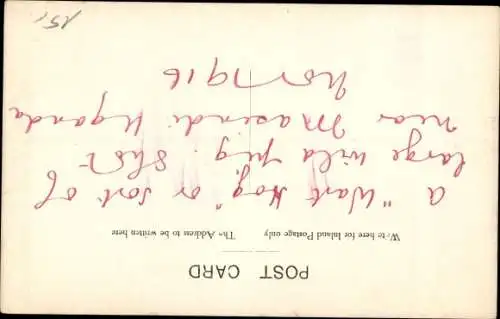 POST CARD
Write here for Inland Postage only
The Address to be written here
a "Wart Hog" or sort of
large wild pig. Shot
near Masendi Uganda
Nov 1916
15,